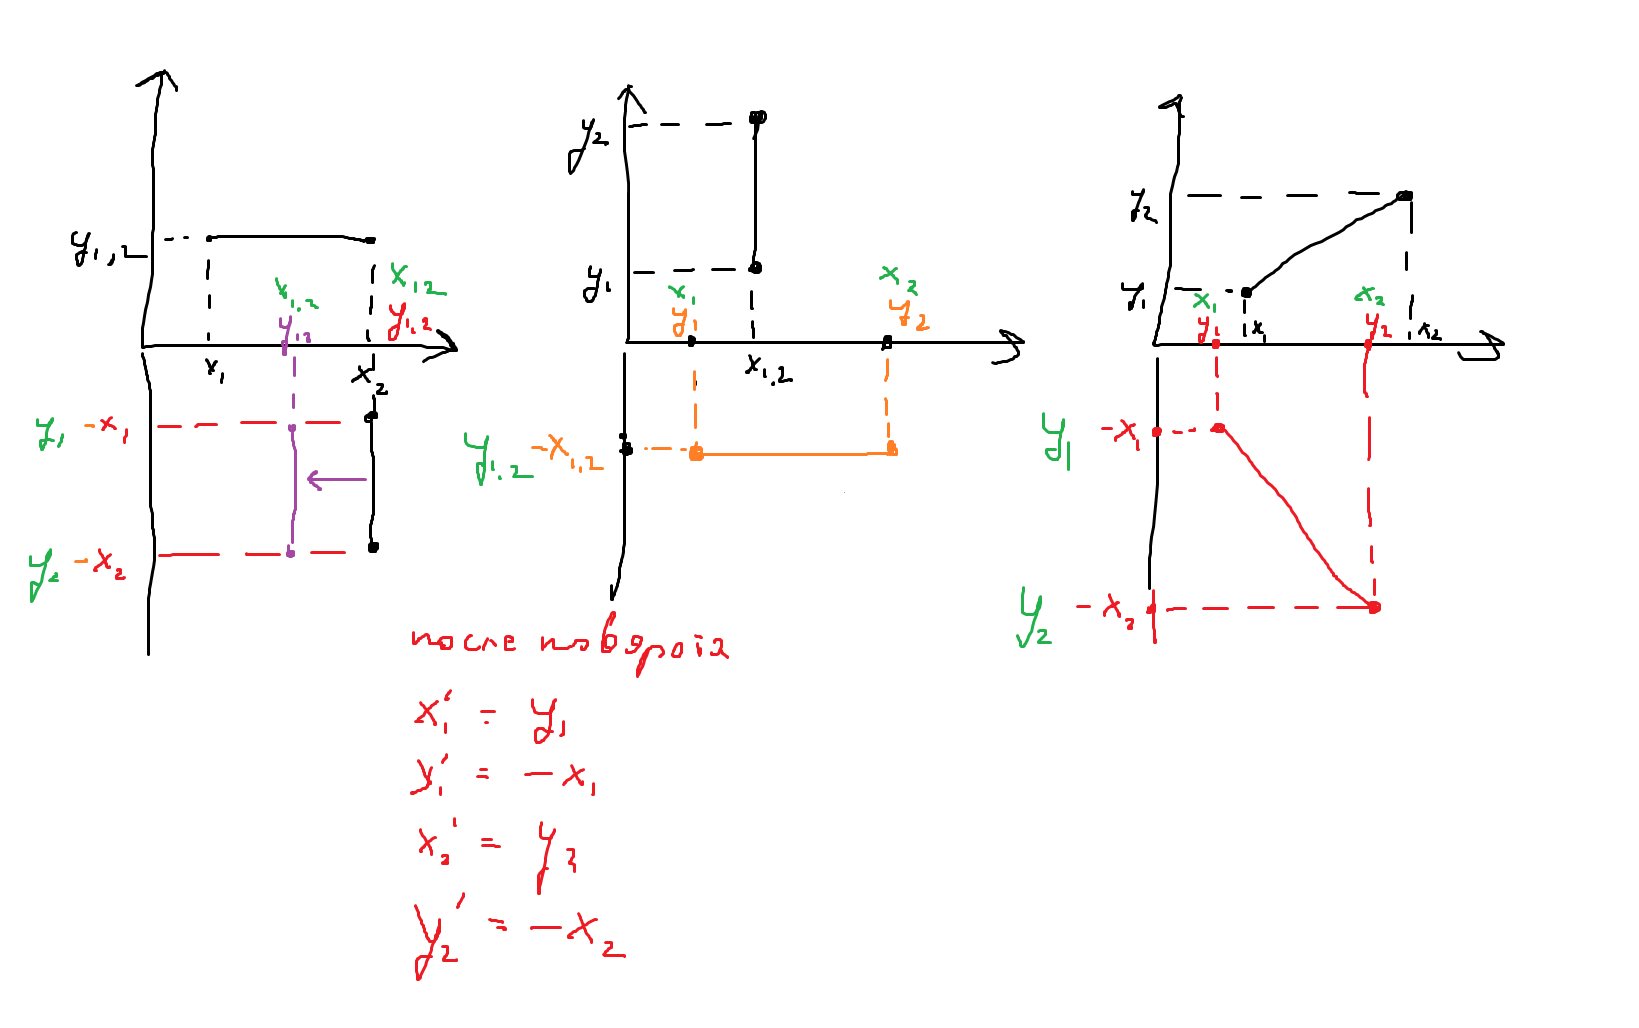 y₁,₂
x₁,₂
y₁,₂
x₁,₂
y₁,₂
x₁
x₂
y₁ -x₁
y₂ -x₂
y₂
y₁
x₁
y₁
x₂
y₂
x₁,₂
y₁,₂ -x₁,₂
y₂
y₁
x₁
y₁
x₁
x₂
y₂
x₂
y₁ -x₁
y₂ -x₂
после
x₁' = y₁
y₁' = -x₁
x₂' = y₂
y₂' = -x₂